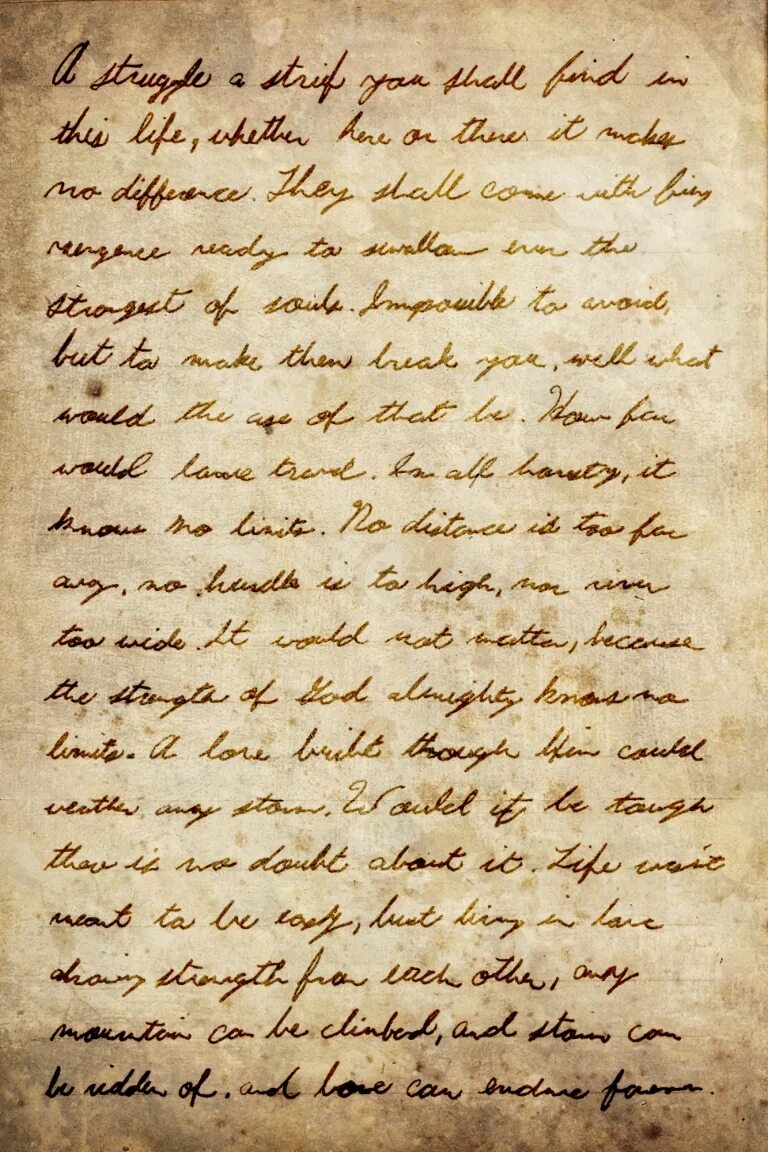 A struggle a strif you shall find in
this life, whether here or there it makes
no difference. They shall come with firey
vengence ready to swallow even the
strongest of souls. Impossible to avoid,
but to make then break you, well what
would the use of that be. How far
would love travel. In all honesty, it
knows no limits. No distance is too far
away, no hurdle is to high, nor river
too wide. It would not matter, because
the strength of God almighty knows no
limits. A love built through Him could
weather any storm. Would it be tough
there is no doubt about it. Life wasn't
meant to be easy, but living in love
drawing strength from each other, any
mountain can be climbed, and storm can
be ridden of. and love can endure forever.